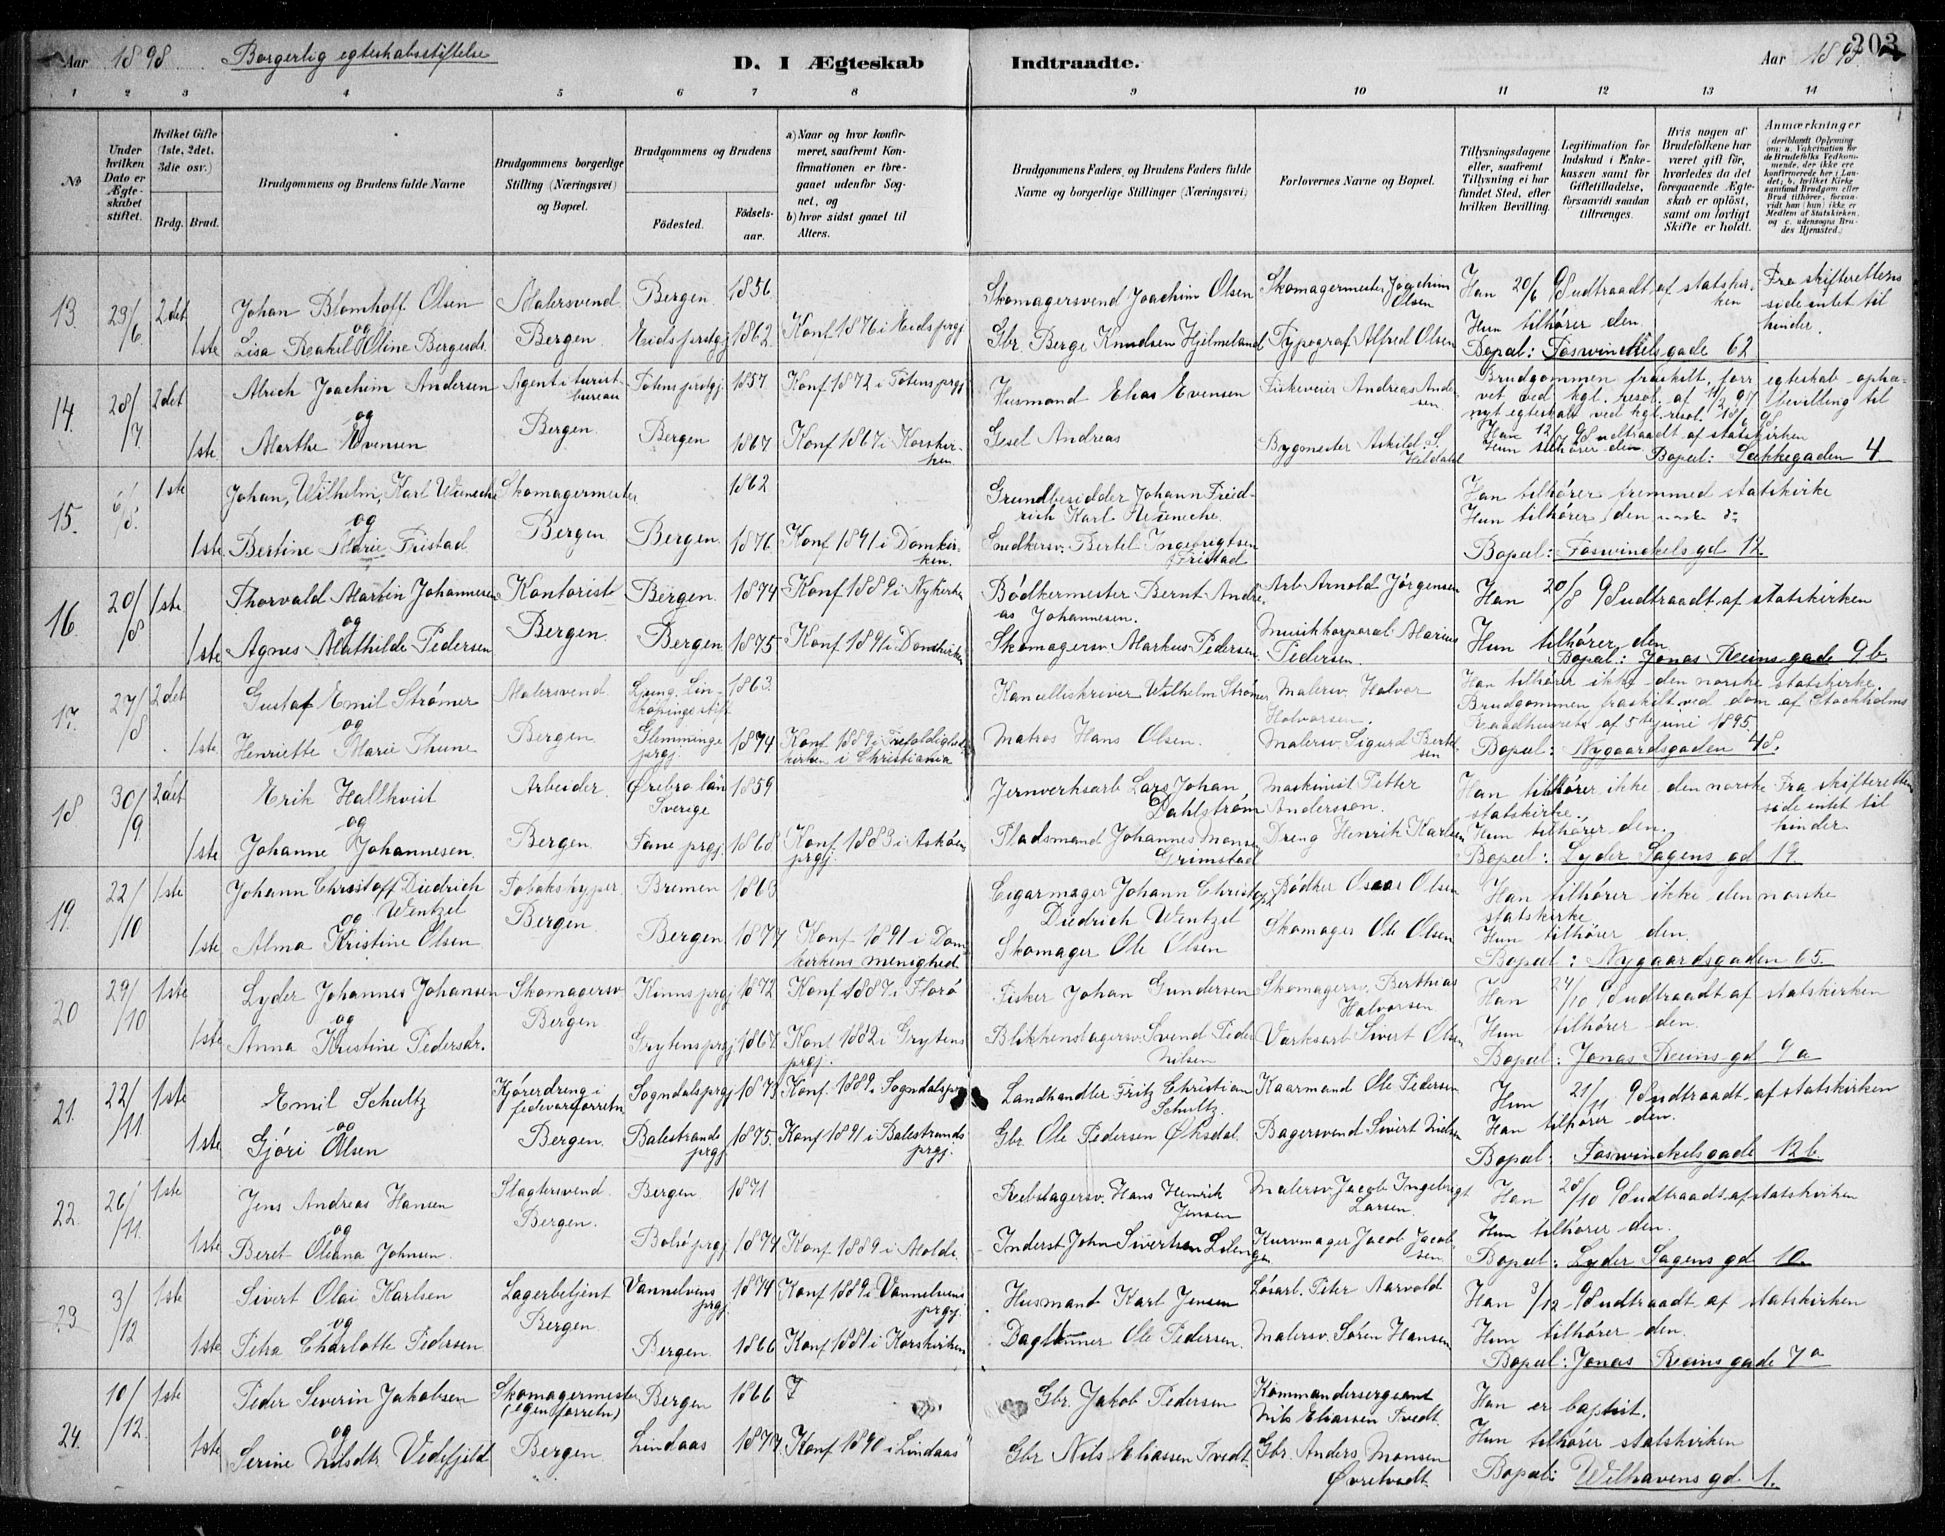 203
Aar 1898 Borgerlig egteskabsstiftelse D. I Ægteskab Indtraadte. Aar 1898
1 2 3 4 5 6 7 8 9 10 11 12 13 14
No
Under hvilken Dato er Ægteskabet stiftet.
Hvilket Gifte (1ste, 2det, 3die osv.)
Brdg. Brud.
Brudgommens og Brudens fulde Navne
Brudgommens borgerlige Stilling (Næringsvei) og Bopæl.
Brudgommens og Brudens
Fødested. Fødselsaar.
a) Naar og hvor konfirmeret, saafremt Konfirmationen er foregaaet udenfor Sognet, og
b) hvor sidst gaaet til Alters.
Brudgommens Faders, og Brudens Faders fulde Navne og borgerlige Stillinger (Næringsvei)
Forlovernes Navne og Bopæl.
Tillysningsdagene eller, saafremt Tillysning ei har fundet Sted, efter hvilken Bevilling.
Legitimation for Indskud i Enkekassen samt for Giftetilladelse, forsaavidt saadan tiltrænges.
Hvis nogen af Brudefolkene har været gift før, hvorledes da det foregaaende Ægteskab er opløst, samt om lovligt Skifte er holdt.
Anmærkninger (deriblandt Oplysning om: a. Vakcination for Brudefolks Vedkommende, der ikke ere konfirmerede her i Landet; b. hvilket Kirkesamfund Brudgom eller Brud tilhører, forsaavidt han (hun) ikke er Medlem af Statskirken, og c. udensogns Brudes Hjemsted.)
13. 29/6. 2det Johan Blomhoff Olsen Malersvend Bergen. 1856 Skomagersvend Joachim Olsen Skomagermester Joachim Olsen Han 20/6 98 udtraadt af statskirken Fra skifterettens side intet til hinder.
og
1ste Lisa Rakel Oline Bergesdr. Bergen. Eids prstgj 1862. Konf 1876 i Eids prgj Gbr. Berge Knudsen Hjelmeland Typograf Alfred Olsen Hun tilhører den.
Bopæl: Foswinckelsgade 62
14. 28/7 2det Alrich Joachim Andersen Agent i turistbureau Totens prstgj. 1857 Konf 1872 i Totens prgj Husmand Elias Evensen Fiskeveier Andreas Andersen. Brudgommen fraskilt, forr egteskab ophævet ved kgl. resol. af bevilling til nyt egteskab ved kgl. resol.
og
1ste Marthe Evensen Bergen. Bergen 1867 Konf 1867 i Korskirken. Gesel Andreas Bygmester Askild S. Han 12/7 98 udtraadt af statskirken
Hun tilhører den. Bopæl: Sækkegaden 4
15. 6/8. 1ste Johan, Wilhelm, Karl Wieneche Skomagermester 1862 Grundbesidder Johann Freidrich Karl Han tilhører fremmed statskirke
og
1ste Bertine Marie Fristad Bergen Bergen. 1876 Konf 1891 i Domkirken. Snedkersv. Bertel Ingebregtsen Fristad Hun tilhører den norske do
Bopæl: Foswinckelsgd 12.
16. 20/8 1ste Thorvald Martin Johannesen Kontorist Bergen. 1874 Konf 1889 i Nykirken Bødkermester Bernt Andreas Johannesen. Arb Arnold Jørgensen Han 20/8 98 udtraadt af statskirken
og
1ste Agnes Mathilde Pedersen Bergen. Bergen 1875 Konf. 1891 i Domkirken Skomagersv Markus Pedersen. Musikkorporal Marius Pedersen. Hun tilhører den.
Bopæl: Jonas Reins gade 9 b.
17. 27/8 2det Gustaf Emil Strømer Malersvend Ljung, Linköpings stift 1863. Kancelliskriver Wilhelm Strømer Malersv. Halvor Halvorsen. Han tilhører ikke den norske statskirke.
Brudgommen fraskilt ved dom af Stockholms Raadhusret af 5te juni 1895.
og
1ste Henriette Marie Thune Bergen. Glemminge prgj 1874 Konf. 1889 i Trefoldighedskirken i Christiania Matros Hans Olsen. Malersv. Sigurd Bertelsen Bopæl: Nygaardsgaden 48.
18 30/9 2det Erik Hallkvist Arbeider. Ørebro län Sverige 1859 Jernverksarb Lars Johan Dahlstrøm Maskinist Petter Andersson. Han tilhører ikke den norske statskirke. Fra skifteretten side intet til hinder.
og
1ste Johanne Johannesen. Bergen. Fane prgj. 1868 Konf. 1883 i Askøens prgj. Pladsmand Johannes Monsen Grimstad Dreng Henrik Karlsen Hun tilhører den.
Bopæl: Lyder Sagens gd 17
19. 22/10 1ste Johann Christoff Diedrich Wentzel Tobakshypper Bremen 1863 Cigarmager Johann Christoph Diedrich Wentzel Bødker Oscar Olsen Han tilhører ikke den norske statskirke
og
1ste Alma Kristine Olsen Bergen. Bergen 1877 Konf 1891 i Domkirkens menighed. Skomager Ole Olsen Skomager Ole Olsen Hun tilhører den.
Bopæl: Nygaardsgaden 65.
20 29/10 1ste Lyder Johannes Johansen Skomagersv Kinns prgj 1872 Konf 1887 i Florø Fisker Johan Gundersen Skomagersv. Berthias Halvorsen Han 27/10 98 udtraadt af statskirken
og
1ste Anna Kristine Pedersdr. Bergen Grytens prgj 1867 Konf 1882 i Grytens prgj. Blikkenslagersv. Svend Peder Nilsen Værksarb Sivert Olsen Hun tilhører den.
Bopæl: Jonas Reins gd 9 a
21. 22/11 1ste Emil Schultz Kjørerdreng i fedevareforretn Sogndals prgj 1873 Konf. 1889 i Sogndals prgj Landhandler Fritz Christian Schultz. Kaarmand Ole Pedersen Hun 21/11 98 udtraadt af statskirken
og
1ste Gjøri Olsen Bergen. Balestrands prgj. 1875. Konf 1891 i Balestrands prgj. Gbr. Ole Pedersen Øksdal. Bagersvend Sivert Nielsen Han tilhører den.
Bopæl: Foswinckelsgade 12 b.
22. 26/11. 1ste Jens Andreas Hansen Slagtersvend. Bergen. 1871 Rebslagersv. Hans Henrik Jensen Malersv Jacob Ingebrigt Larsen. Han 28/10 98 udtraadt af statskirken
og
1ste Beret Oliana Johnsen. Bergen. Bolsø prgj. 1874 Konf. 1889 i Molde. Inderst John Sivertsen Kurvmager Jacob Jacobsen Hun tilhører den.
Bopæl: Lyder Sagens gd 10.
23 3/12 1ste Sivert Olai Karlsen Lagerbetjent Vannelvens prgj. 1874 Konf. 1889 i Vannelvens prgj. Husmand Karl Jensen Løsarb. Peter Aarvold Han 3/12 98 udtraadt af statskirken
og
1ste Petra Charlotte Pedersen Bergen. Bergen. 1866 Konf 1881 i Korskirken Daglønner Ole Pedersen. Malersv. Søren Hansen Hun tilhører den.
Bopæl: Jonas Reins gade 7 a
24. 10/12. 1ste Peder Severin Jakobsen Skomagermester (egen forretn) Bergen 1866 ? Gbr. Jakob Pedersen Kommandersergeant Nils Eliassen Tvedt. Han er baptist.
og
1ste Serine Nilsdtr Vedefjeld Bergen. Lindaas 1877. Konf 1890 i Lindaas Gbr Nils Eliassen Tvedt. Gbr. Anders Monsen Øvretvedt. Hun tilhører statskirken
Bopæl: Wilhavens gd 1.